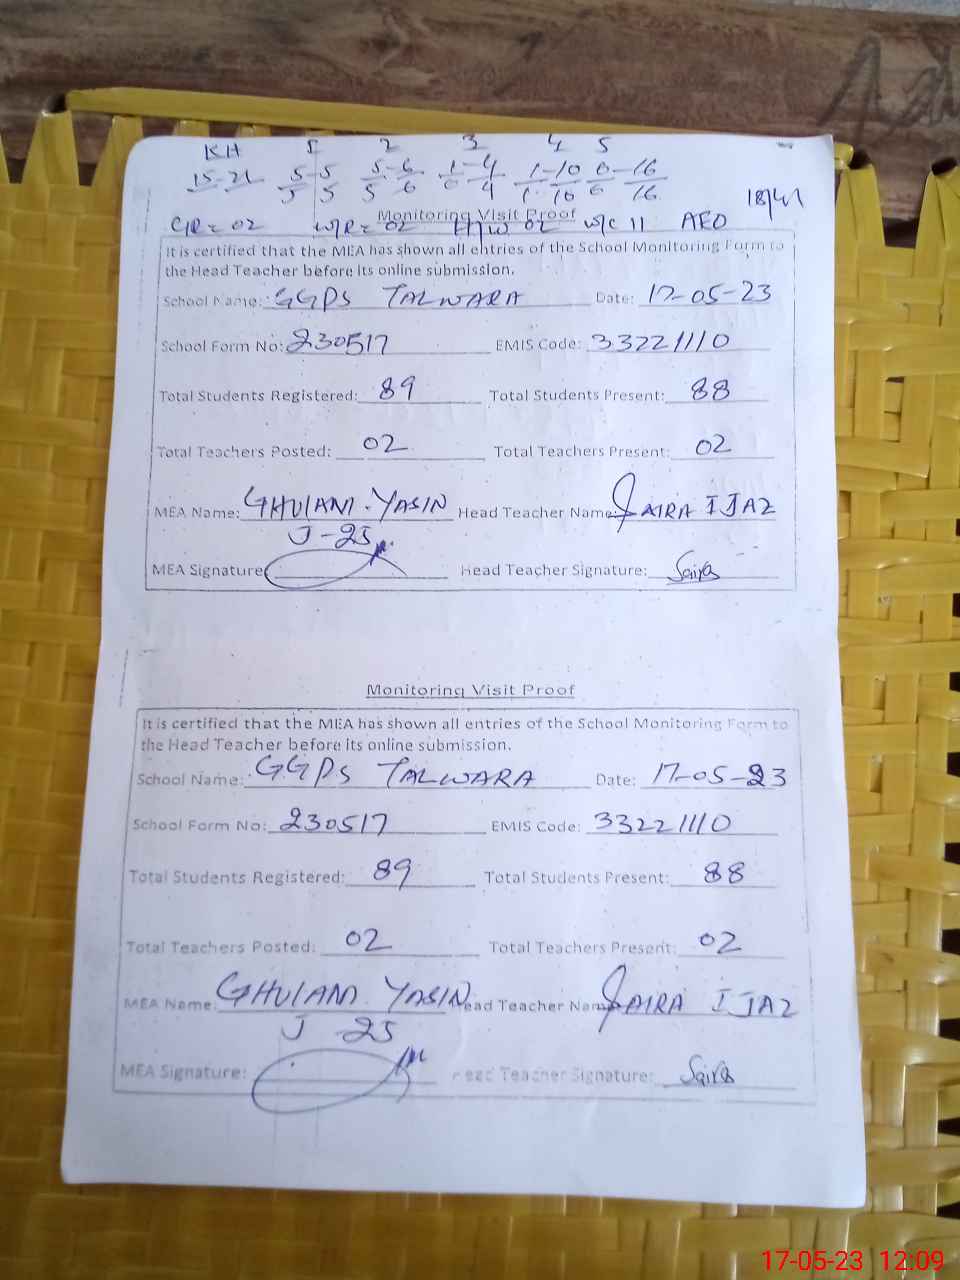 KH 1 2 3 4 5
15-21 5-5 5-6 1-4 1-10 0-16
5 5 5 6 0 4 1 10 0 16
18/41
GR = 02 W/R = 02 H/W 02 W/C 11 AEO
Monitoring Visit Proof
It is certified that the MEA has shown all entries of the School Monitoring Form to
the Head Teacher before its online submission.
School Name: GGPS TALWARA Date: 17-05-23
School Form No: 230517 EMIS Code: 33221110
Total Students Registered: 89 Total Students Present: 88
Total Teachers Posted: 02 Total Teachers Present: 02
MEA Name: GHULAM YASIN Head Teacher Name: SAIRA IJAZ
J-25
MEA Signature Head Teacher Signature: Saira
Monitoring Visit Proof
It is certified that the MEA has shown all entries of the School Monitoring Form to
the Head Teacher before its online submission.
School Name: GGPS TALWARA Date: 17-05-23
School Form No: 230517 EMIS Code: 33221110
Total Students Registered: 89 Total Students Present: 88
Total Teachers Posted: 02 Total Teachers Present: 02
MEA Name: GHULAM YASIN Head Teacher Name SAIRA IJAZ
J 25
MEA Signature: Head Teacher Signature: Saira
17-05-23 12:09